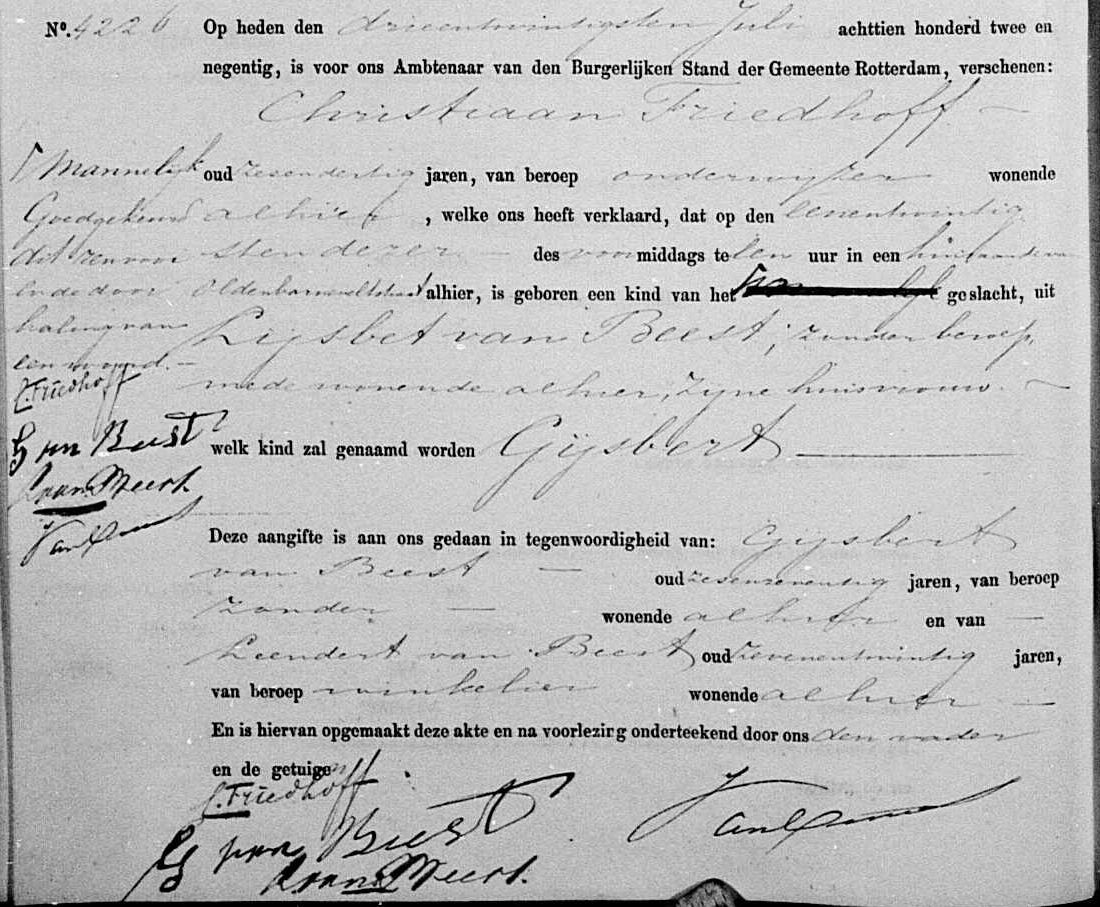 Nº. 4226 Op heden den drieentwintigsten Juli achttien honderd twee en
negentig, is voor ons Ambtenaar van den Burgerlijken Stand der Gemeente Rotterdam, verschenen:
Christiaan Friedhoff
oud zesendertig jaren, van beroep onderwyzer wonende
alhier, welke ons heeft verklaard, dat op den eenentwintig
sten dezer des voormiddags te tien uur in een huis aan de
Oldenbarneveltstraat alhier, is geboren een kind van het geslacht, uit
Lijsbet van Beest, zonder beroep,
mede wonende alhier, zyne huisvrouw.
welk kind zal genaamd worden Gijsbert
Deze aangifte is aan ons gedaan in tegenwoordigheid van: Gijsbert
van Beest oud zesenzeventig jaren, van beroep
zonder wonende alhier en van
Leendert van Beest oud zevenentwintig jaren,
van beroep winkelier wonende alhier
En is hiervan opgemaakt deze akte en na voorlezing onderteekend door ons den vader
en de getuigen
C. Friedhoff
G van Beest
L van Beest.
Mannelijk
Goedgekeurd
dit renvooi
en de door
haling van
een woord.
C. Friedhoff
G van Beest
L van Beest.